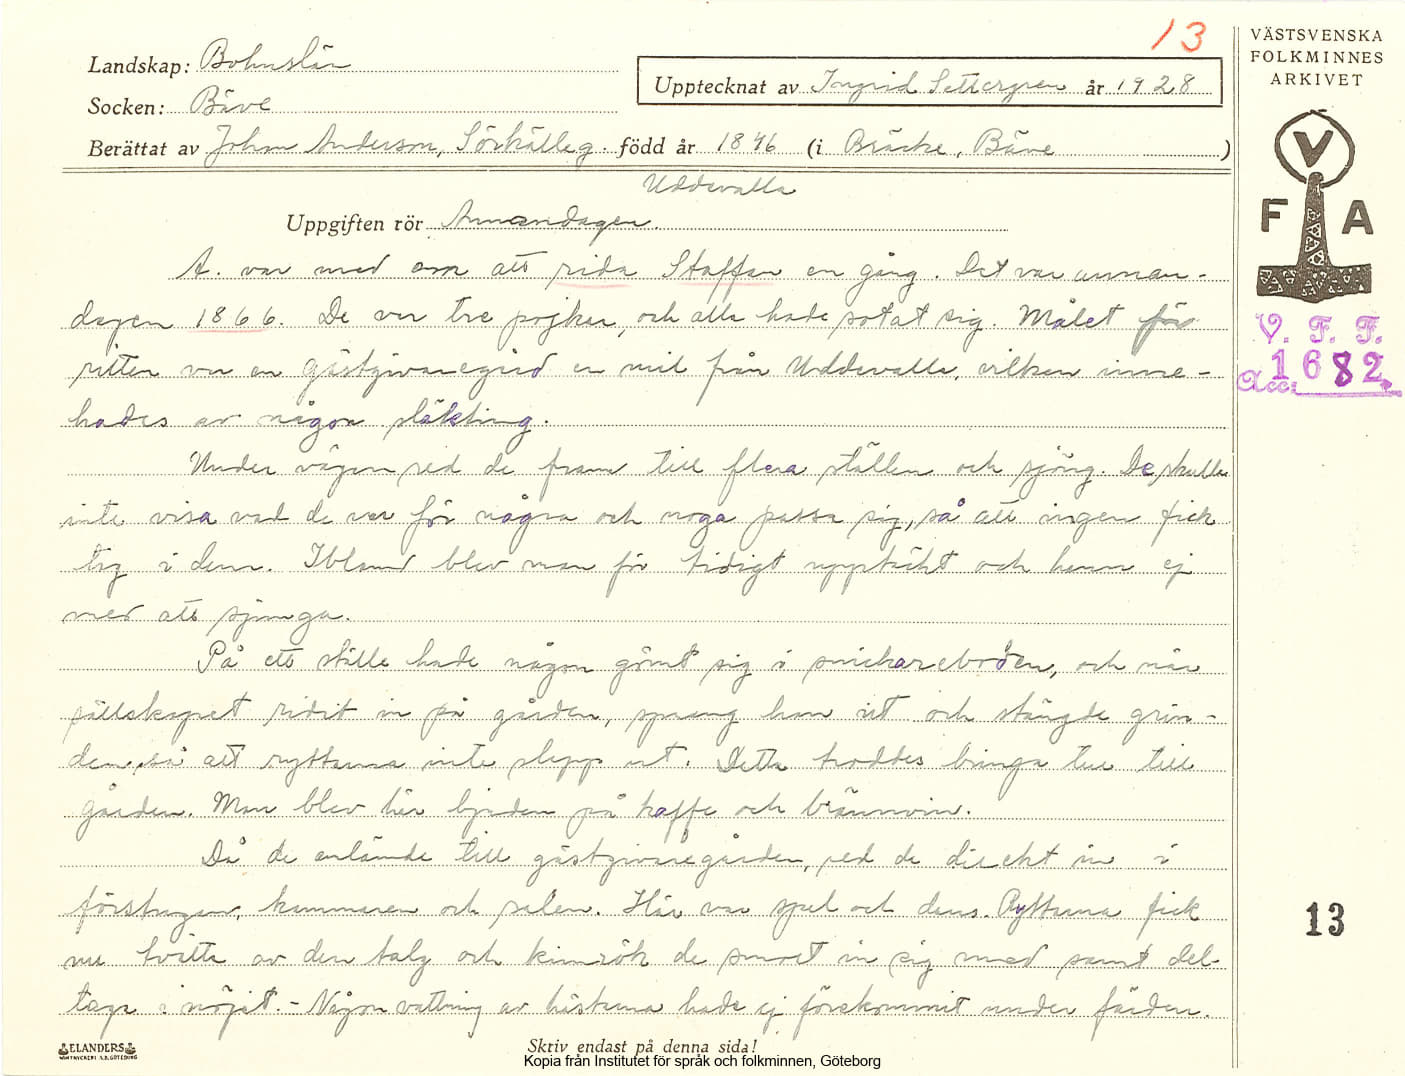 13
VÄSTSVENSKA
FOLKMINNES
ARKIVET
Landskap: Bohuslän
Upptecknat av Ingrid Settergren år 1928
Socken: Bäve
Berättat av Johan Anderson, Sörkälleg. född år 1846 (i Bräcke, Bäve )
Uddevalla
Uppgiften rör Annandagen.
A. var med om att rida Staffan en gång. Det var annan-
dagen 1866. De var tre pojkar, och alla hade sotat sig. Målet för
ritten var en gästgivaregård en mil från Uddevalla, vilken inne-
hades av någon släkting.
Under vägen red de fram till flera ställen och sjöng. De skulle
inte visa vad de var för några och noga passa sig, så att ingen fick
tag i dem. Ibland blev man för tidigt upptäckt och hann ej
med att sjunga.
På ett ställe hade någon gömt sig i snickareboden, och när
sällskapet ridit in på gården, sprang han ut och stängde grin-
den, så att ryttarna inte slapp ut. Detta troddes bringa tur till
gården. Man blev här bjuden på kaffe och brännvin.
Då de anlände till gästgivaregården, red de direkt in i
förstugan, kammaren och salen. Här var spel och dans. Ryttarna fick
nu tvätta av den talg och kimrök de smort in sig med samt del-
taga i nöjet. - Någon vattning av hästarna hade ej förekommit under färden.
V F A
V. F. F.
Acc. 1682
13
ELANDERS
Skriv endast på denna sida!
Kopia från Institutet för språk och folkminnen, Göteborg